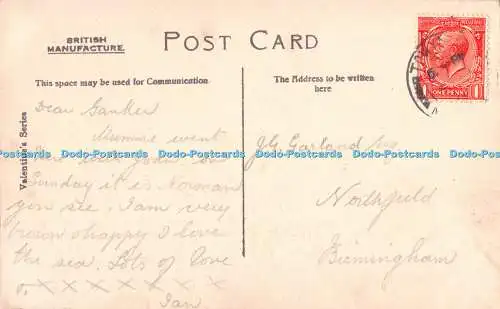 BRITISH
MANUFACTURE.
POST CARD
This space may be used for Communication.
The Address to be written
here
Valentine's Series
ONE PENNY
1 1
Dear
went
Sunday it is Norman
you see. I am very
brown & happy I love
the sea. Lots of love
x x x x x x x x
Ian
J.G. Garland Esq
Northfield
Birmingham
Dodo-Postcards Dodo-Postcards Dodo-Postcards Dodo-Postcards Dodo-Postcards